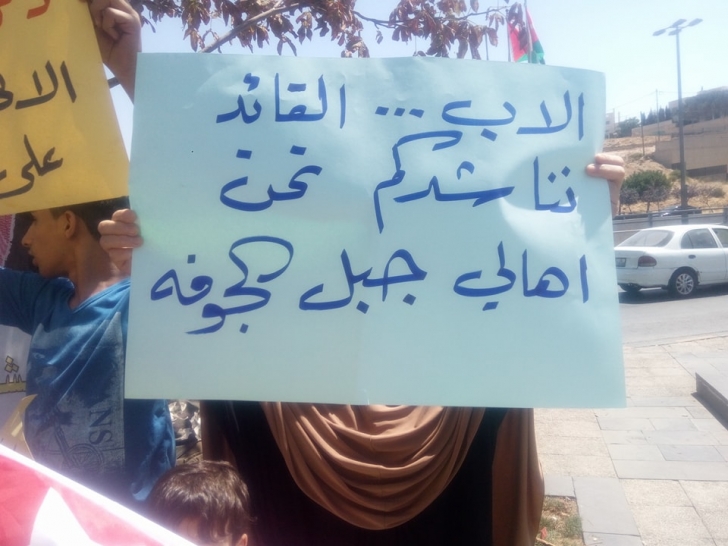 الاب ... القائد
نناشدكم نحن
اهالي جبل الجوفه
على